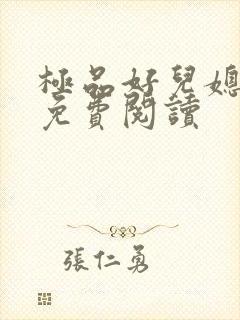 極品好兒媳
免費閱讀
張仁勇